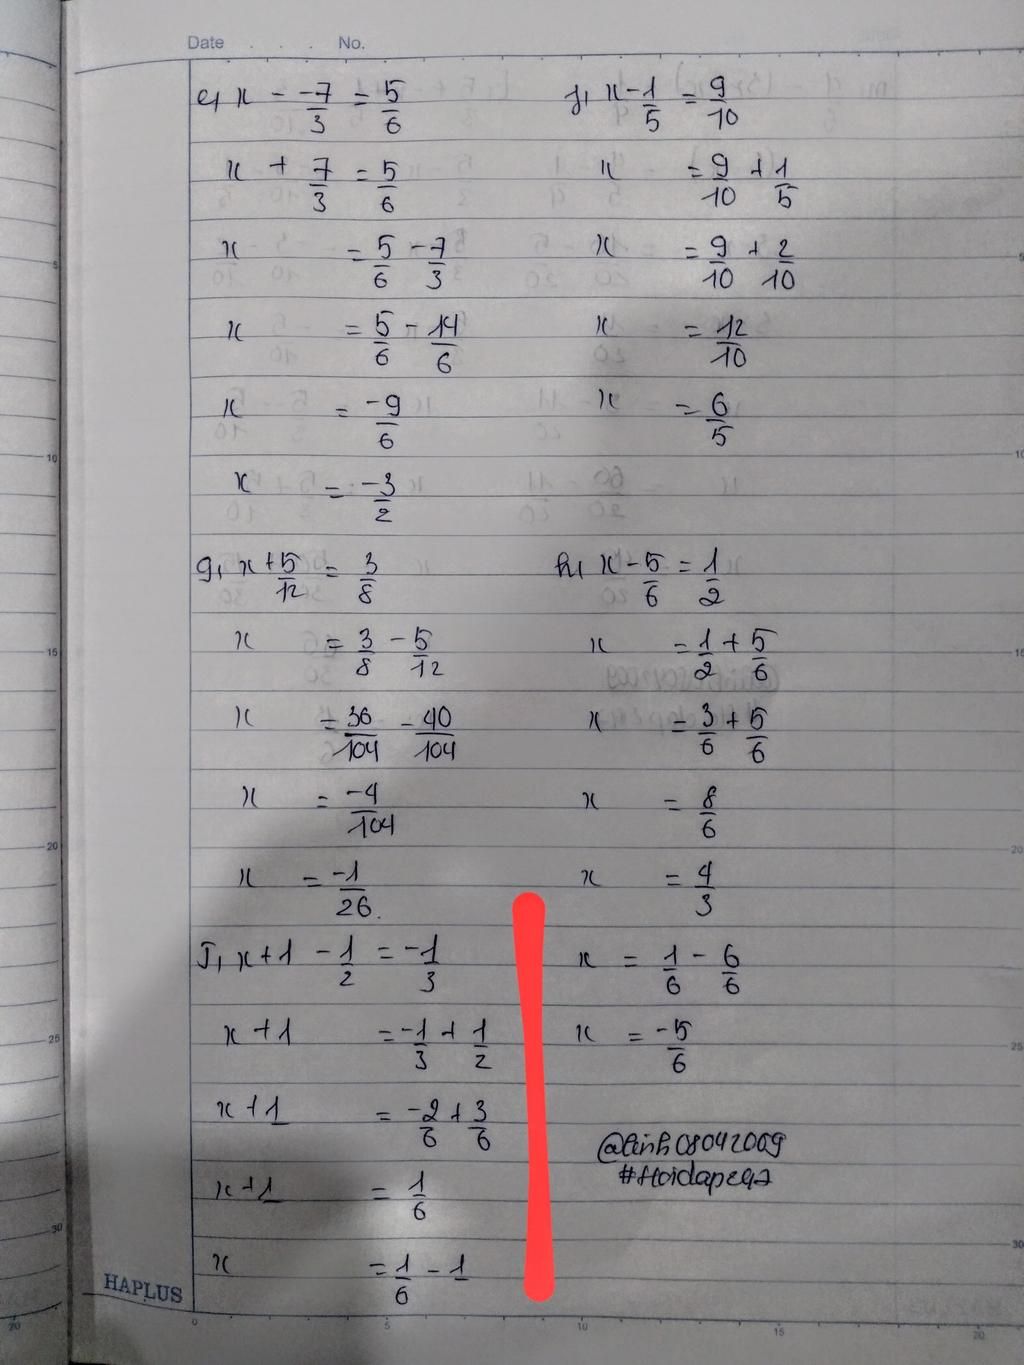 Date . . . No.
e, x - -7/3 = 5/6
x + 7/3 = 5/6
x = 5/6 - 7/3
x = 5/6 - 14/6
x = -9/6
x = -3/2
f, x - 1/5 = 9/10
x = 9/10 + 1/5
x = 9/10 + 2/10
x = 12/10
x = 6/5
g, x + 5/12 = 3/8
x = 3/8 - 5/12
x = 36/104 - 40/104
x = -4/104
x = -1/26.
h, x - 5/6 = 1/2
x = 1/2 + 5/6
x = 3/6 + 5/6
x = 8/6
x = 4/3
J, x + 1 - 1/2 = -1/3
x + 1 = -1/3 + 1/2
x + 1 = -2/6 + 3/6
x + 1 = 1/6
x = 1/6 - 1
x = 1/6 - 6/6
x = -5/6
@linh08042009
#Hoidap247
HAPLUS